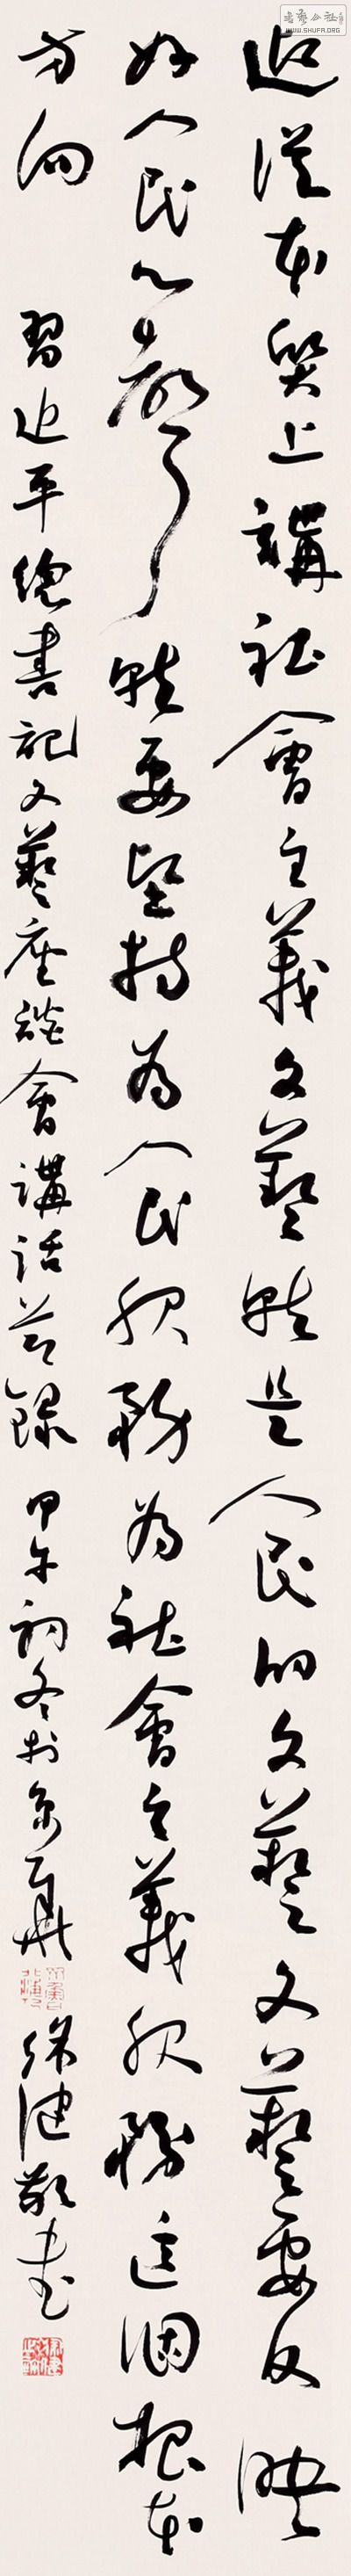 從本質上講社會主義文藝就是人民的文藝文藝要反映
好人民心聲就要堅持為人民服務為社會主義服務這個根本
方向 習近平總書記文藝座談會講話節錄 甲午初冬於京華 徐健敬書
WWW.SHUFA.ORG